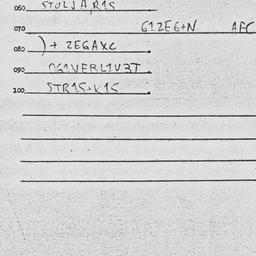 060 STOLJA,R1S
070 G1ZE6+N AFC
080 )+ ZEGAXC
090 DG1VERL1V3T
100 STR1S.K1S